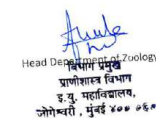 Head Department of Zoology
विभाग प्रमुख
प्राणीशास्त्र विभाग
इ. यु. महाविद्यालय,
जोगेश्वरी, मुंबई ४०० ०६०